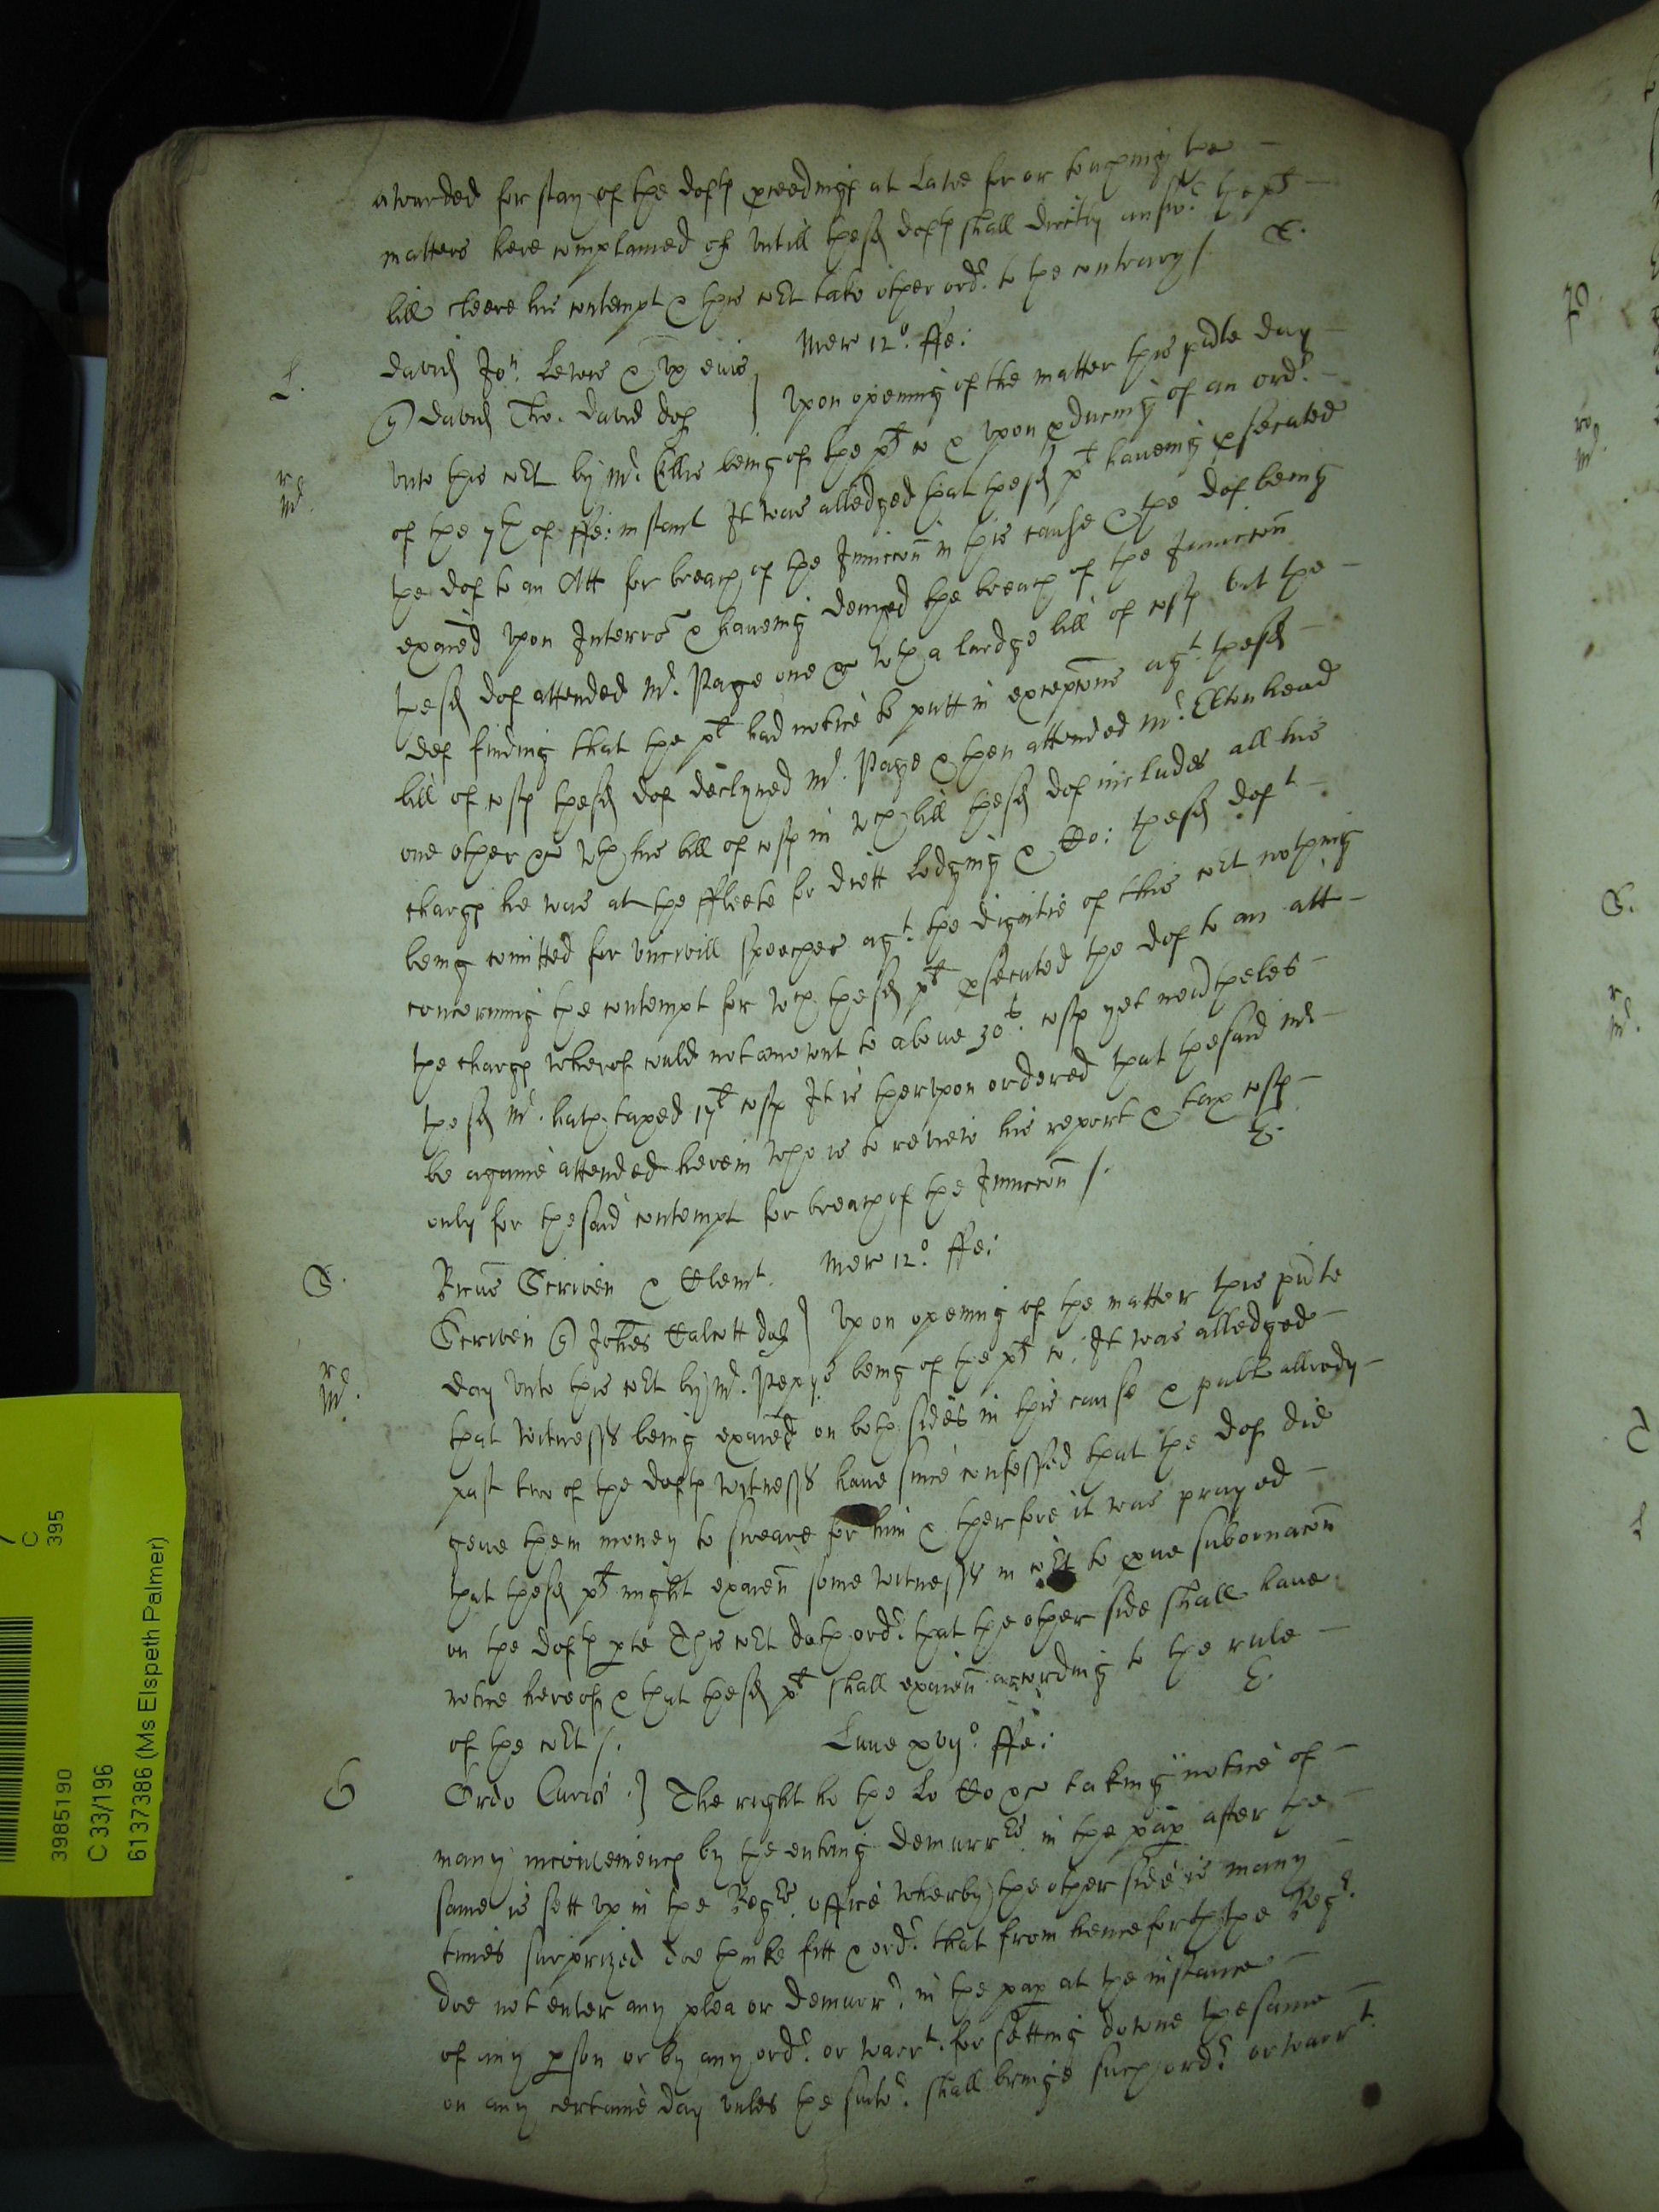 awarded for stay of the defts pceedings at Lawe for or touching the
matters here complained of untill the sd defts shall directly answr the plts
bill cleere his contempt & this cort take other ordr to the contrary /. E.
Mer 12o. ffe:
L.
David Jon. Lewis & ux eius
q David Tho. David def } Upon opening of the matter this pnte day
r Mr.
unto this cort by Mr. Ellis being of the plts co & upon pducing of an ordr.
of the 7th of ffe: instant It was alledged that the sd plt haveing psecuted
the def to an Att for breach of the Iniuccon in this cause & the def being
exaied upon Interro & haveing denyed the breach of the Iniuccon
the sd def attended Mr. Page one &c wth a lardge bill of costs but the
def finding that the plt had notice to putt in excepcons agt. the sd
bill of costs the sd def declyned Mr. Page & then attended Mr. Eltonhead
one other &c wth his bill of costs in wch bill the sd def includes all his
charges he was at the ffleete for diett Lodging & Co: the sd deft
being comitted for uncivill speeches agt. the dignitie of this cort nothing
concerning the contempt for wch the sd plt psecuted the def to an att
the charges wherof could not amount to above 30s. costs yet neverthelès
the sd Mr. hath taxed 17l costs It is therupon ordered that the said Mr
be againe attended herein who is to review his report & tax costs
only for the said contempt for breach of the Iniuccon /. E.
Mer 12o ffe:
S.
Scriven & Clemt.
Scriven q Johes Calcott def } Upon opening of the matter this pnte
r Mr.
day unto this cort by Mr. Pepys being of the plts co, It was alledged
that witnesses being exaied on both sides in this cause & publ allredy
past two of the defts witnesses have since confessed that the def did
geve them money to sweare for him & therfore it was prayed
that the sd plts might exaien some witnesses in cort to pve subornacon
on the defts pte This cort doth ordr. that the other side shall have
notice hereof & that the sd plts shall exaien according to the rule
of the cort /. E.
Lune xvijo. ffe:
Ordo Curie .} The right ho the Lo Co &c taking notice of
many inconveniencs by the entring demurrers in the pap after the
same is sett up in the Regrs. office wherby the other side is many
times surprized doe thinke fitt & ordr. that from henceforth the Regr.
doe not enter any plea or demurr. in the pap at the instance
of any pson or by any ordr. or warrt. for setting downe the same
on any certaine day unles the suitor. shall bringe such ordr. or warrt.
C
395
3985190
C 33/196
6137386 (Ms Elspeth Palmer)